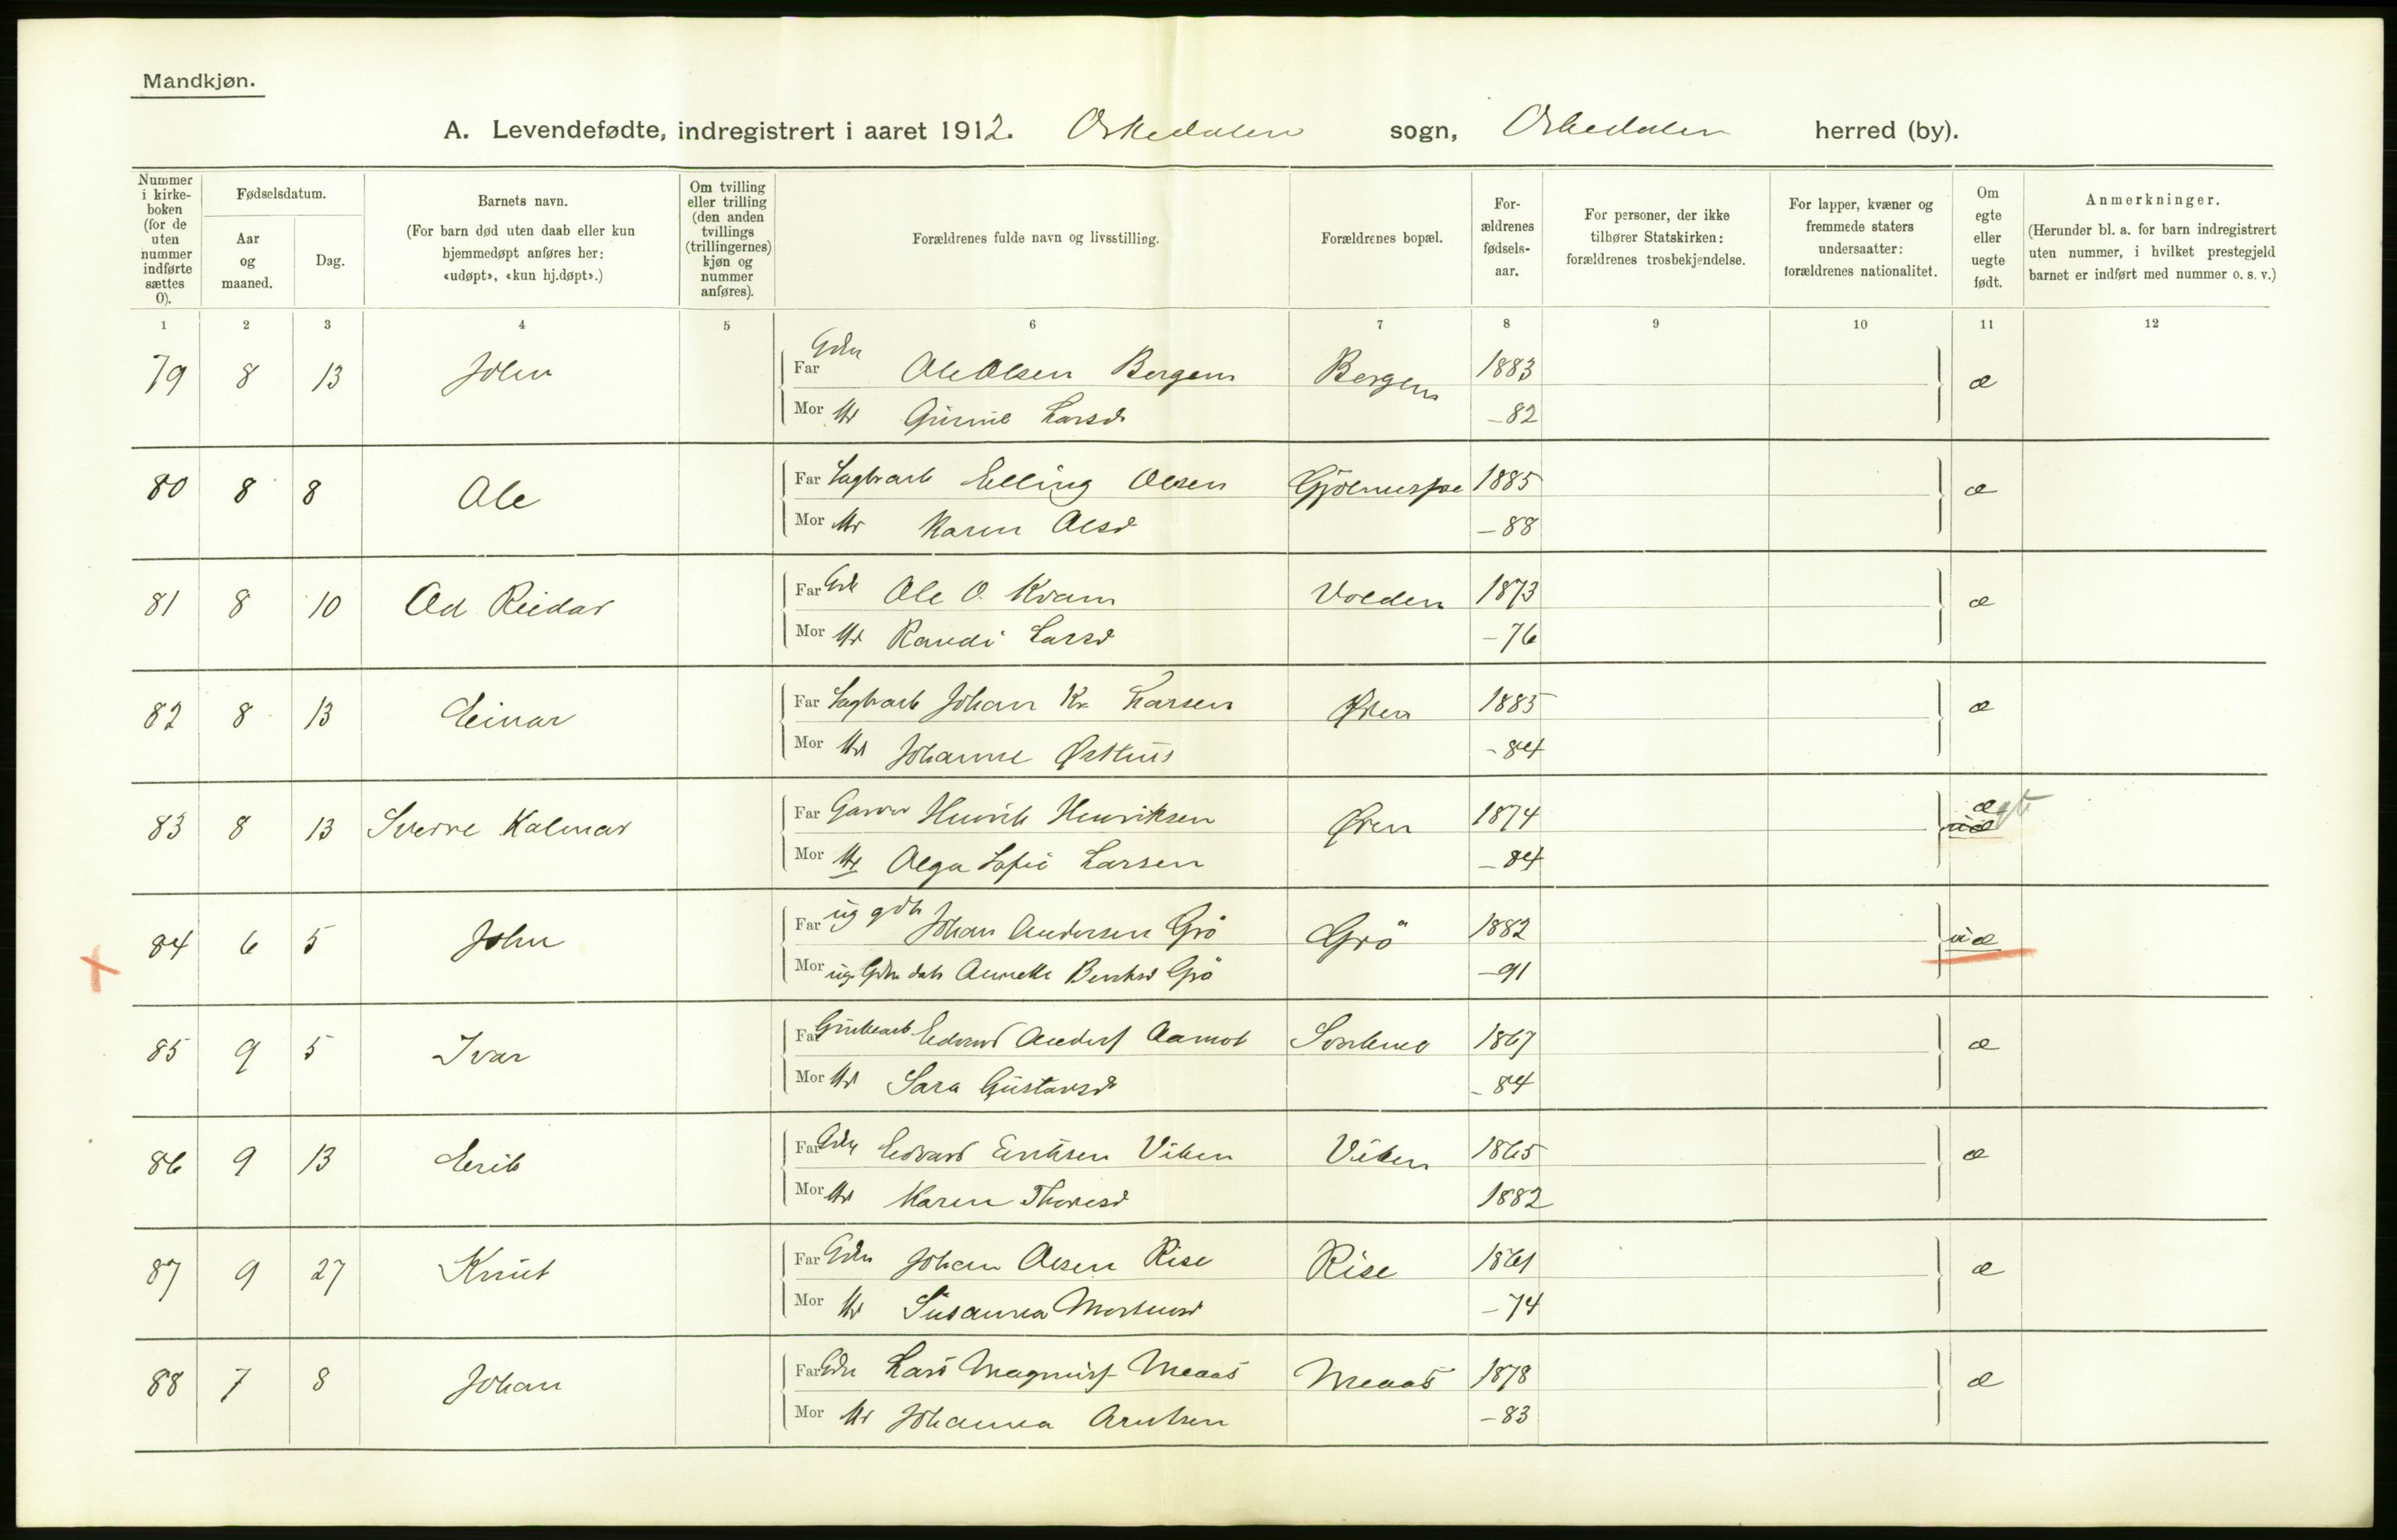 Mandkjøn.
A. Levendefødte, indregistrert i aaret 1912. Orkedalen sogn, Orkedalen herred (by).
Nummer i kirke-boken (for de uten nummer indførte sættes 0).
Fødselsdatum.
Aar og maaned.
Dag.
Barnets navn.
(For barn død uten daab eller kun hjemmedøpt anføres her: «udøpt», «kun hj.døpt».)
Om tvilling eller trilling (den anden tvillings (trillingernes) kjøn og nummer anføres).
Forældrenes fulde navn og livsstilling.
Forældrenes bopæl.
For-ældrenes fødsels-aar.
For personer, der ikke tilhører Statskirken: forældrenes trosbekjendelse.
For lapper, kvæner og fremmede staters undersaatter: forældrenes nationalitet.
Om egte eller uegte født.
Anmerkninger.
(Herunder bl. a. for barn indregistrert uten nummer, i hvilket prestegjeld barnet er indført med nummer o. s. v.)
1 2 3 4 5 6 7 8 9 10 11 12
79 8 13 John Far Gdbr Ole Olsen Bergem Bergem 1883 æ
Mor Hr Gurine Larsd -82
80 8 8 Ole Far Sagbrarb Elling Olsen 1885 æ
Mor Hr Karen Olsd -88
81 8 10 Od Reidar Far Gdb Ole O. Kvam Volden 1873 æ
Mor Hr Randi Larsd -76
82 8 13 Einar Far Sagbrarb Johan Kr. Larsen Øren 1885 æ
Mor Hr Johanne Østhus -84
83 8 13 Sverre Kalmar Far Garver Henrik Henriksen Øren 1874 æ
Mor Hr Olga Sofie Larsen -84
84 6 5 John Far ug gdb Johan Andersen Grö Grö 1882 uæ
Mor ug Gdbr datr Bentsd Grö -91
85 9 5 Ivar Far Edvard Anders Aamot 1867 æ
Mor Hr Sara Gustavsd -84
86 9 13 Erik Far Gdbr Edvard Eriksen Viken Viken 1865 æ
Mor Hr Karen Thoresd 1882
87 9 27 Knut Far Gdbr Johan Olsen Rise Rise 1861 æ
Mor Hr Susanna Mortensd -74
88 7 8 Johan Far Gdbr Lars Magnus Meaas Meaas 1878 æ
Mor Hr Johanna Arntsen -83